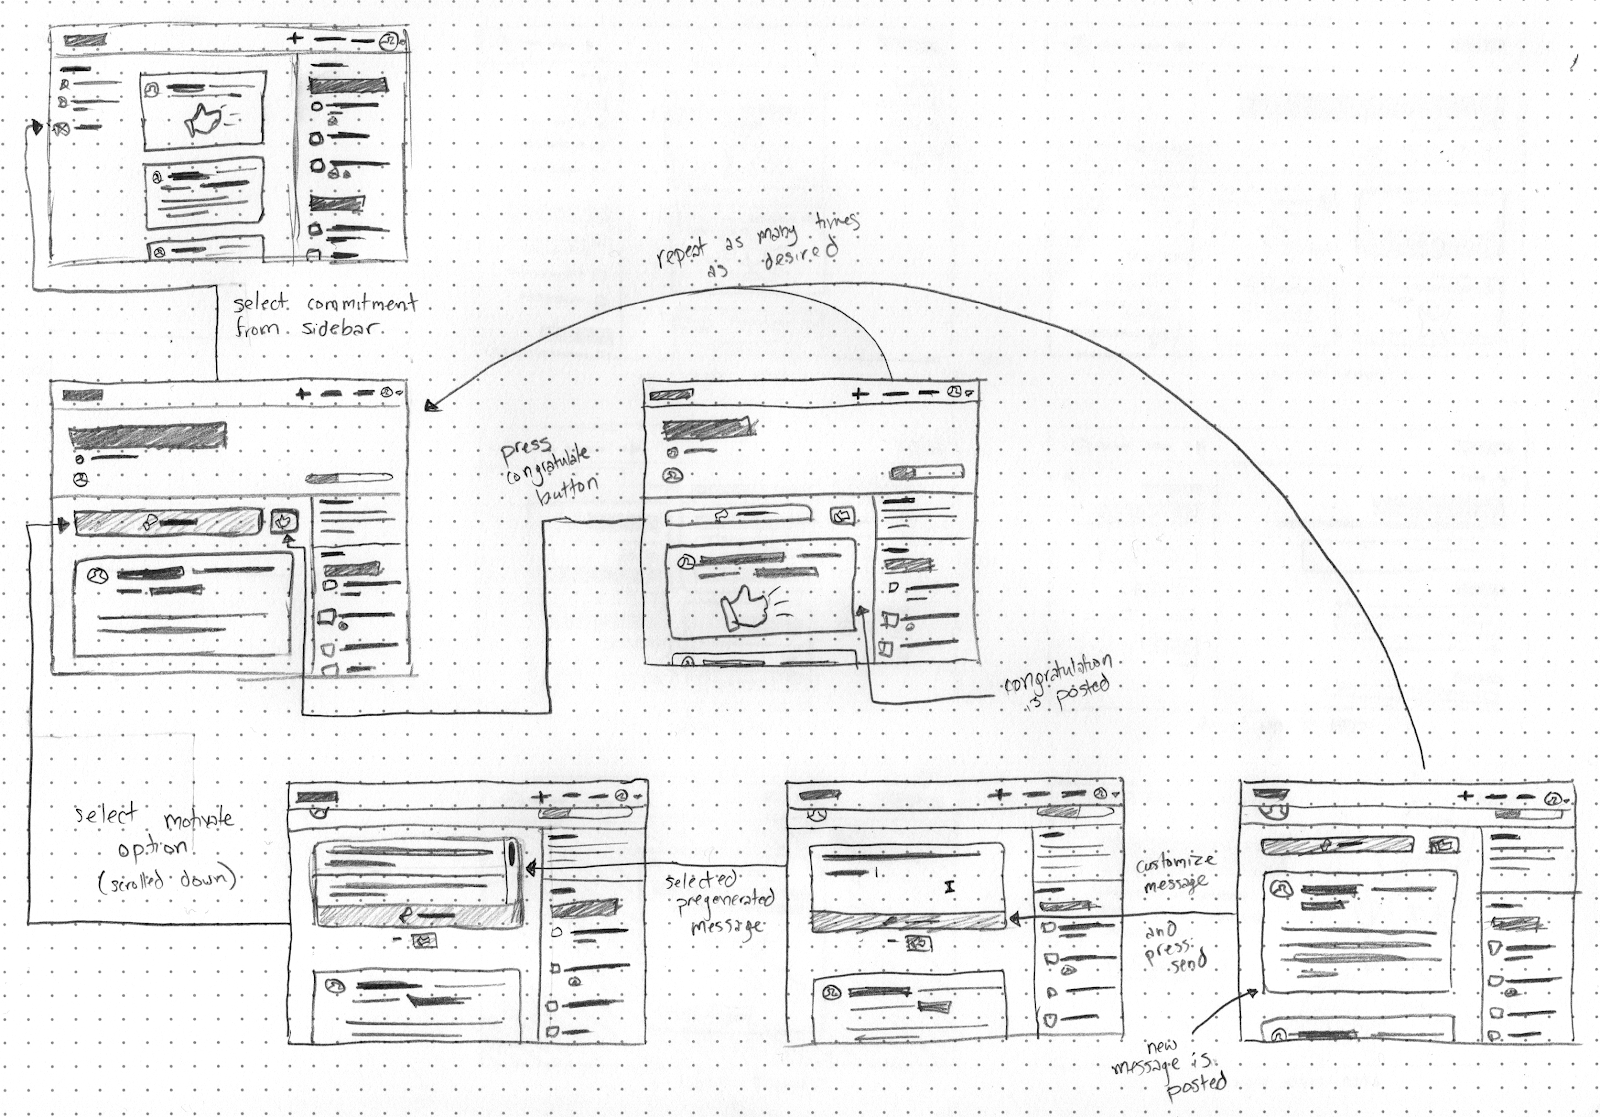 select commitment
from sidebar.
repeat as many times
as desired
press
congratulate
button
congratulation
is posted
select motivate
option
(scrolled down)
selected
pregenerated
message
customize
message
and
press
send
new
message is
posted